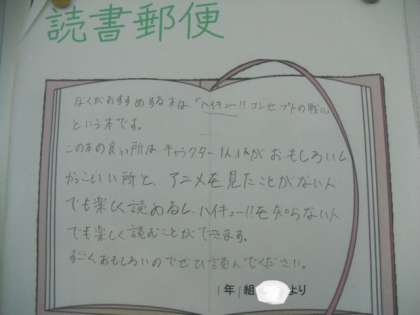 読書郵便
ぼくがおすすめする本は「ハイキュー!! コンセプトの戦い」
という本です。
この本の良い所は キャラクター1人1人が おもしろいし
かっこいい所と、アニメを見たことがない人
でも楽しく読めるし、ハイキュー!!を知らない人
でも楽しく読むことができます。
すごくおもしろいのでぜひ読んでください。
1年 組 より